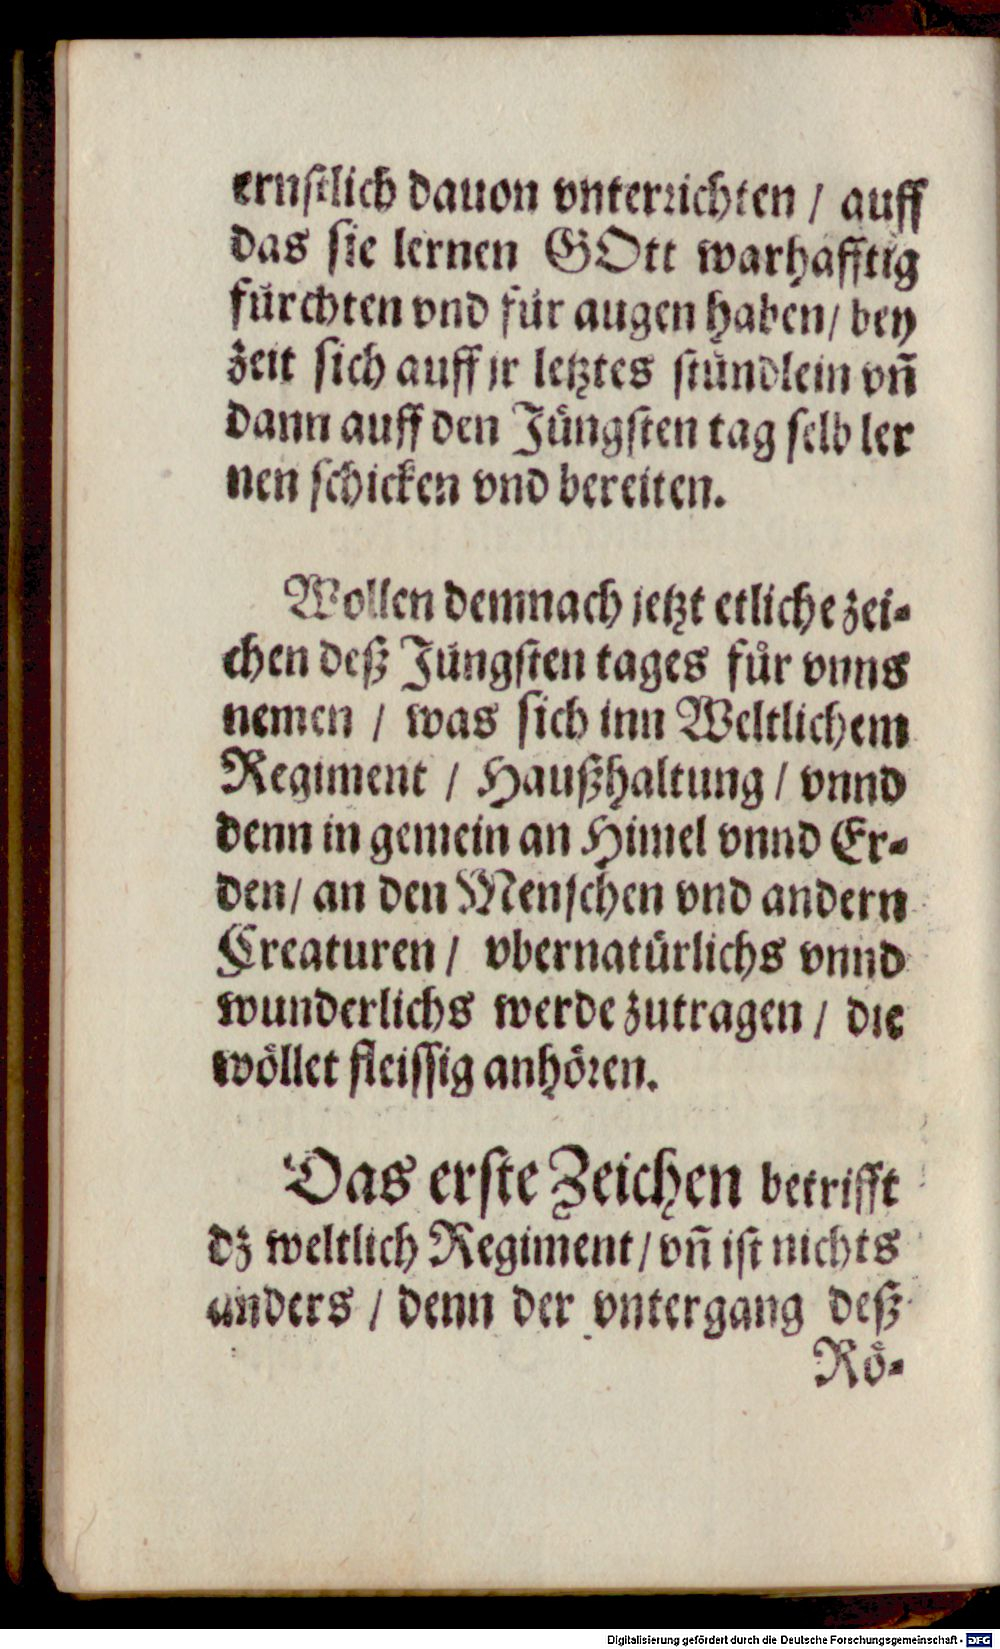 ernſtlich dauon vnterꝛichten / auff
das ſie lernen GOtt warhafftig
fuͤrchten vnd fuͤr augen haben / bey
zeit ſich auff jr letztes ſtuͤndlein vñ
dann auff den Juͤngſten tag ſelb ler
nen ſchicken vnd bereiten.
Wollen demnach jetzt etliche zei-
chen deß Juͤngſten tages fuͤr vnns
nemen / was ſich inn Weltlichem
Regiment / Haußhaltung / vnnd
denn in gemein an Himel vnnd Er-
den / an den Menſchen vnd andern
Creaturen / vbernatuͤrlichs vnnd
wunderlichs werde zutragen / die
woͤllet fleiſſig anhoͤꝛen.
Das erſte Zeichen betrifft
dz weltlich Regiment / vñ iſt nichts
anders / denn der vntergang deß
Roͤ-
Digitalisierung gefördert durch die Deutsche Forschungsgemeinschaft - DFG